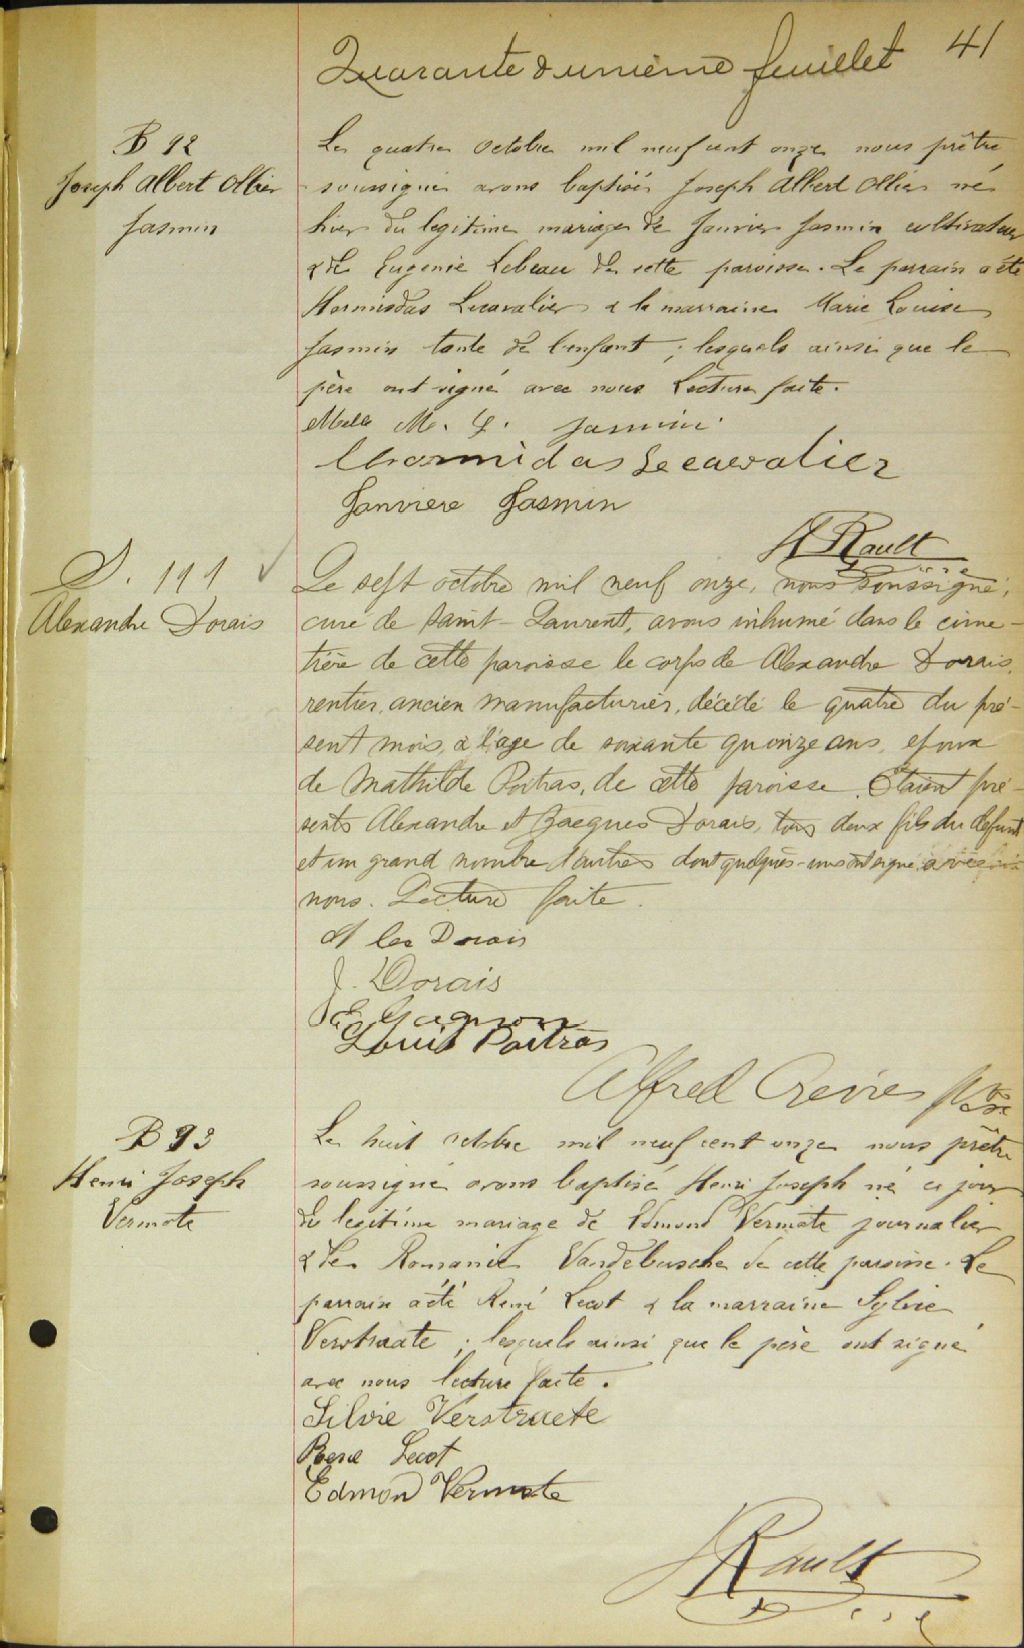 Quarante & unième feuillet 41
B 92
Joseph Albert Ollier
Jasmin
Le quatre octobre mil neuf cent onze nous prêtre
soussigné avons baptisé Joseph Albert Ollier né
hier du legitime mariage de Janvier Jasmin cultivateur
& de Eugenie Lebeau de cette paroisse. Le parrain a été
Hormisdas Lecavalier & la marraine Marie Louise
Jasmin tante de l'enfant ; lesquels ainsi que le
père ont signé avec nous Lecture faite.
Melle M. L. Jasmin
Hormidas Lecavalier
Janviere Jasmin
Rault
D. 111
Alexandre Dorais
Le sept octobre mil neuf onze, nous soussigné,
curé de Saint-Laurent, avons inhumé dans le cime-
tière de cette paroisse le corps de Alexandre Dorais,
rentier, ancien manufacturier, décédé le quatre du pré-
sent mois, à l'age de soixante quinze ans, epoux
de Mathilde Poitras, de cette paroisse. Etaient pré-
sents Alexandre et Jacques Dorais, tous deux fils du defunt
et un grand nombre d'autres dont quelques-uns ont signé avec
nous. Lecture faite.
Alex Dorais
J. Dorais
E. Gagnon
Louis Poitras
Alfred Crevier Ptre
B 93
Henri Joseph
Vermote
Le huit octobre mil neuf cent onze nous prêtre
soussigné avons baptisé Henri Joseph né ce jour
du legitime mariage de Edmond Vermote journalier
& de Romanie Vandebusche de cette paroisse. Le
parrain a été René Lecot & la marraine Sylvie
Verstraate ; lesquels ainsi que le père ont signé
avec nous lecture faite.
Silvie Verstraete
René Lecot
Edmond Vermote
Rault